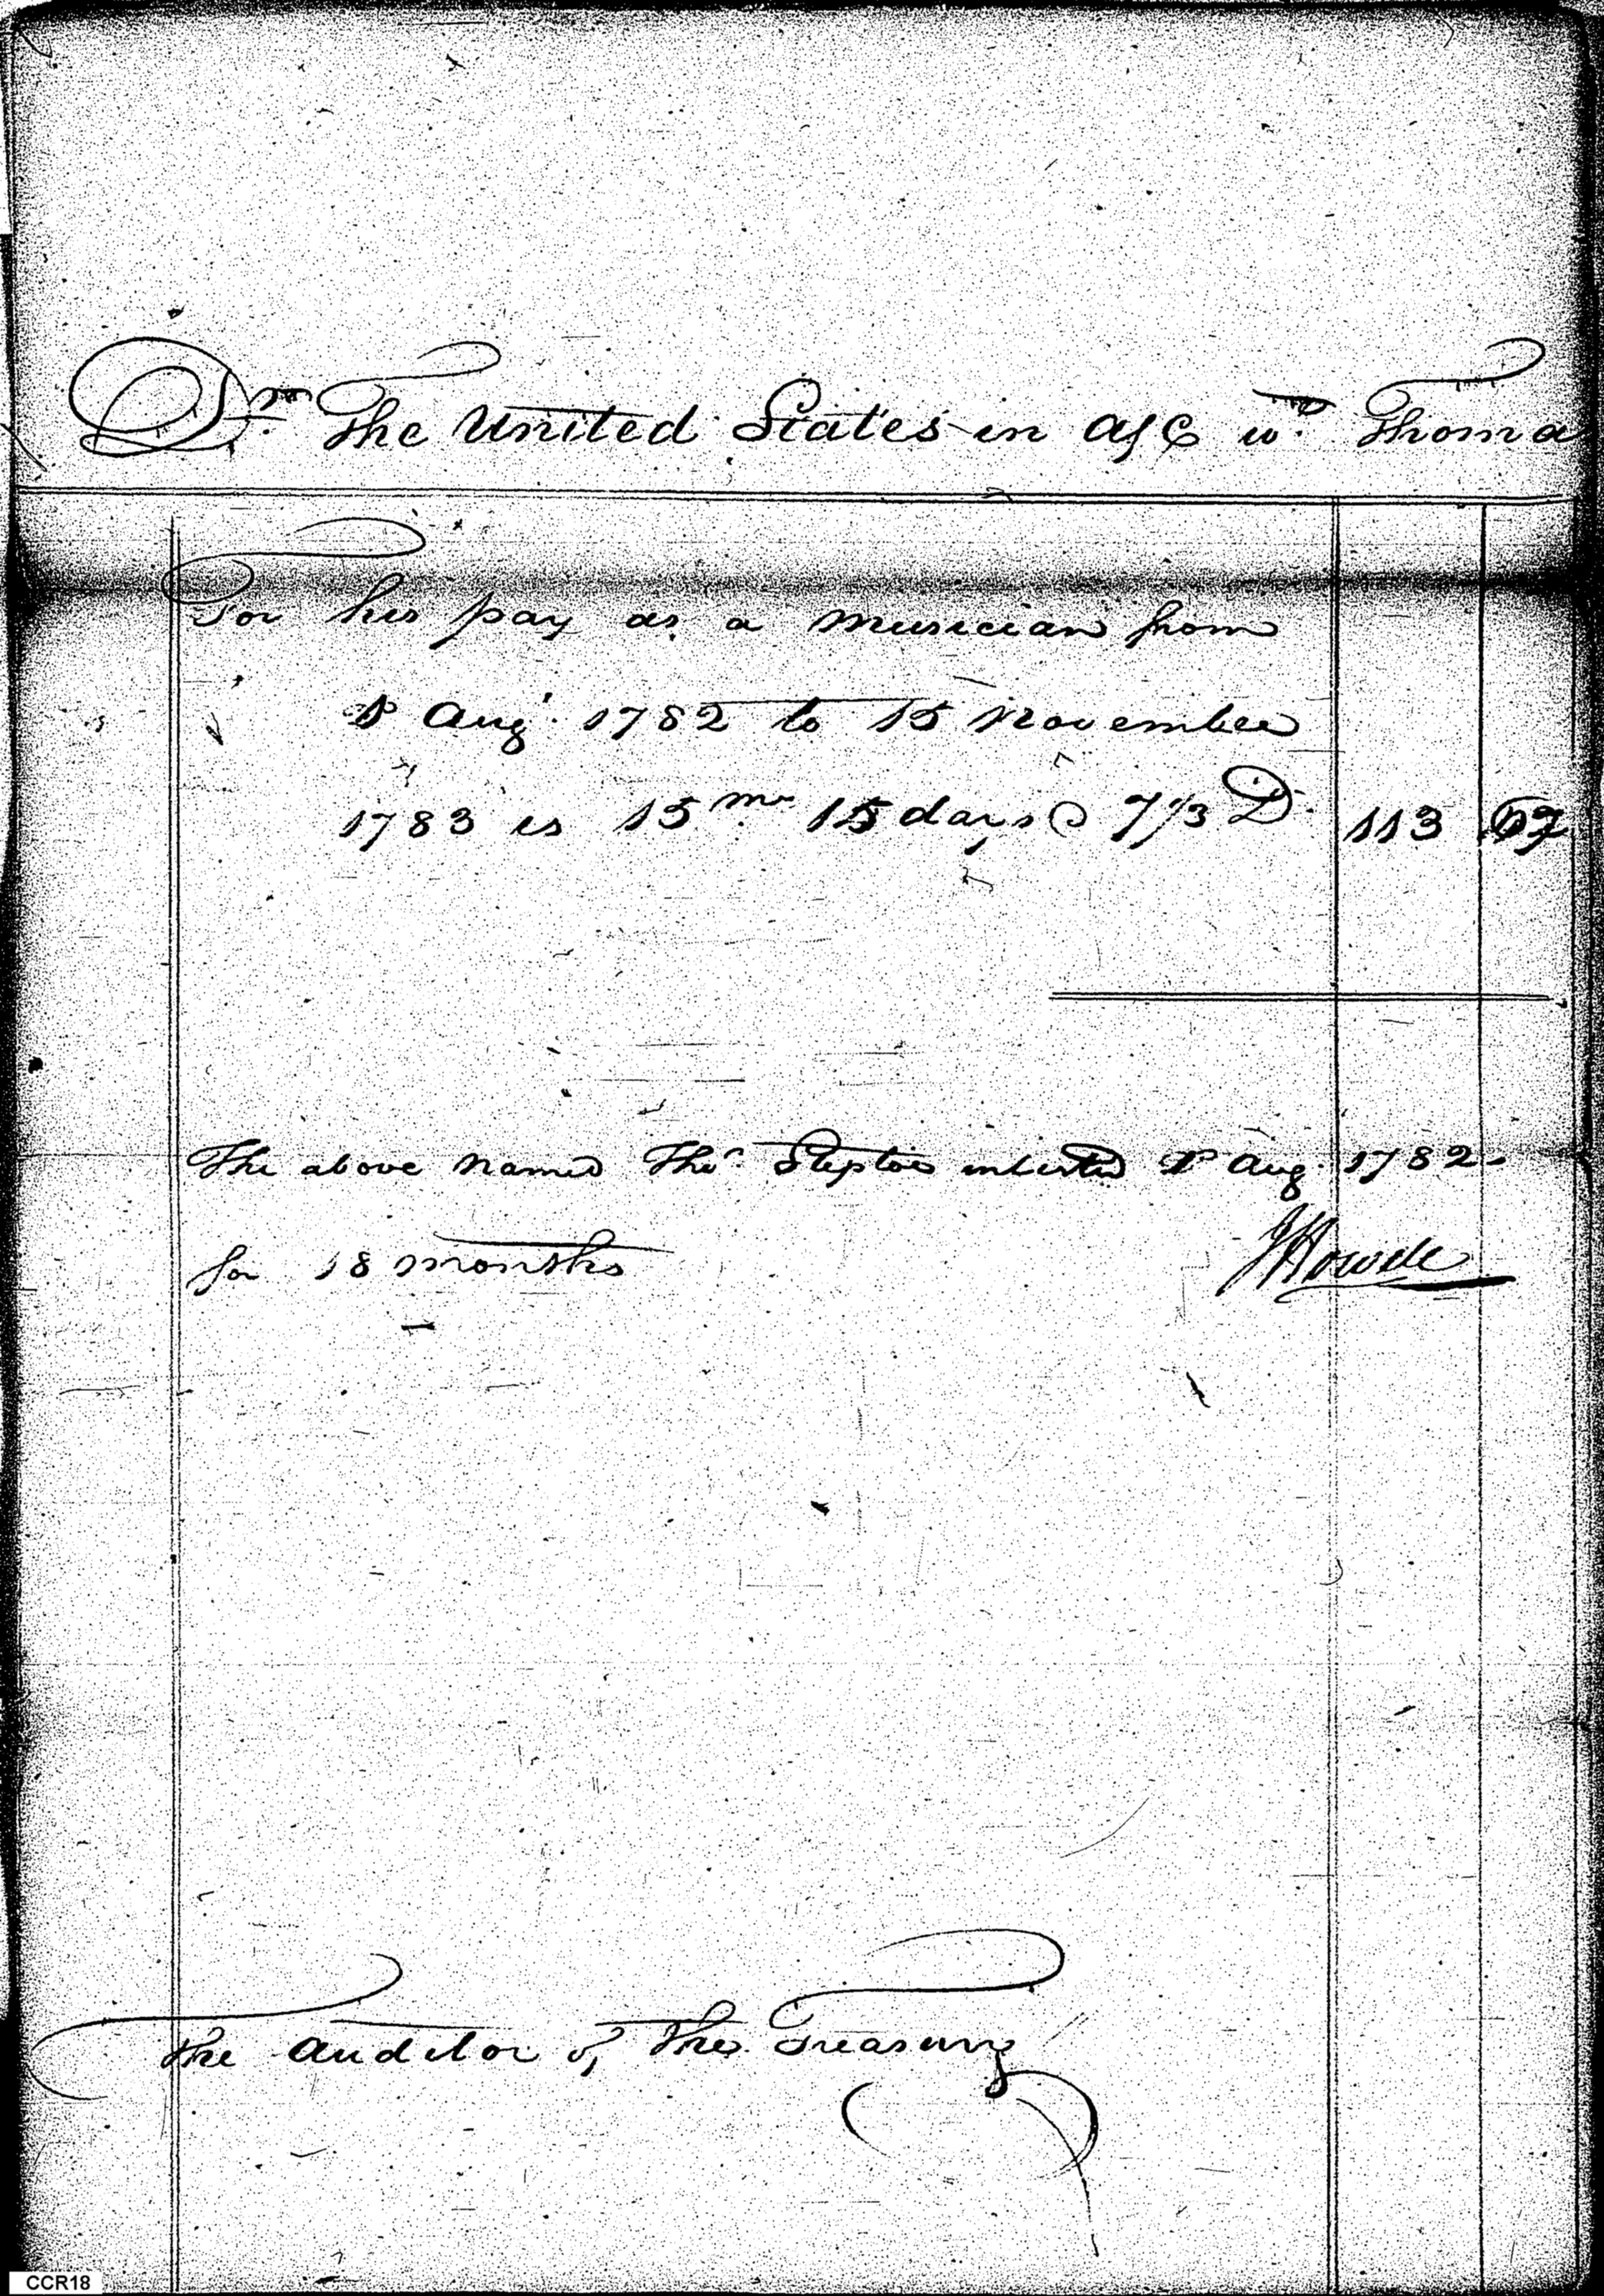 Dr. The United States in a/c wth Thomas
For his pay as a musician from
1st Augt. 1782 to 15 November
1783 is 15 ms. 15 days @ 7 1/3 D. 113 67
The above named Thos. Steptoe inlisted 1st Aug. 1782
for 18 months JHowell
The Auditor of the Treasury
CCR18